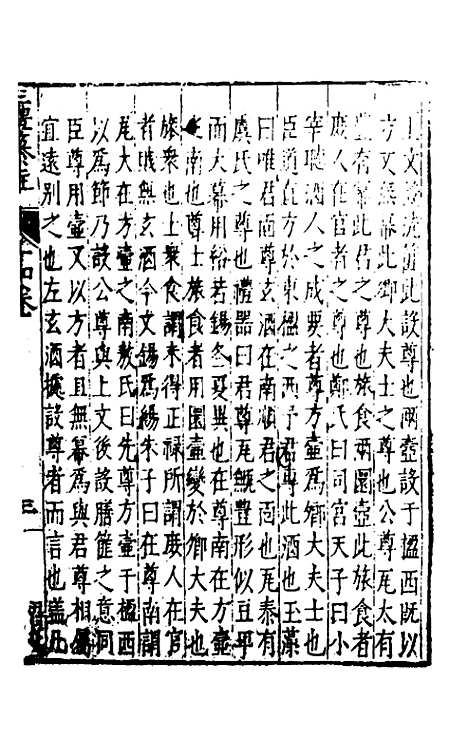 上文膳篚此設尊也兩壺設于楹西既以
方又無冪此卿大夫士之尊也公尊瓦大有
豐有冪此君之尊也旅食兩圜壺此旅食者
庶人在官者之尊也鄭氏曰司宮天子曰小
宰聽酒人之成要者尊方壺爲鄉大夫士也
臣道直方於東楹之西予君專此酒也玉藻
曰唯君面尊玄酒在南順君之面也瓦泰有
虞氏之尊也禮器曰君尊瓦甒豐形似豆卑
而大幕用綌若錫冬夏異也在尊南在方壺
之南也尊士旅食者用圜壺變於鄉大夫也
旅衆也士衆食謂未得正祿所謂庶人在官
者賤無玄酒今文錫爲緆朱子曰在尊南謂
瓦大在方壺之南敖氏曰先尊方壺于楹西
以爲節乃設公尊與上文後設膳篚之意同
臣尊用壺又以方者且無幕爲與君尊相屬
宜遠別之也左玄酒據設尊者而言也蓋凡
十四卷
三